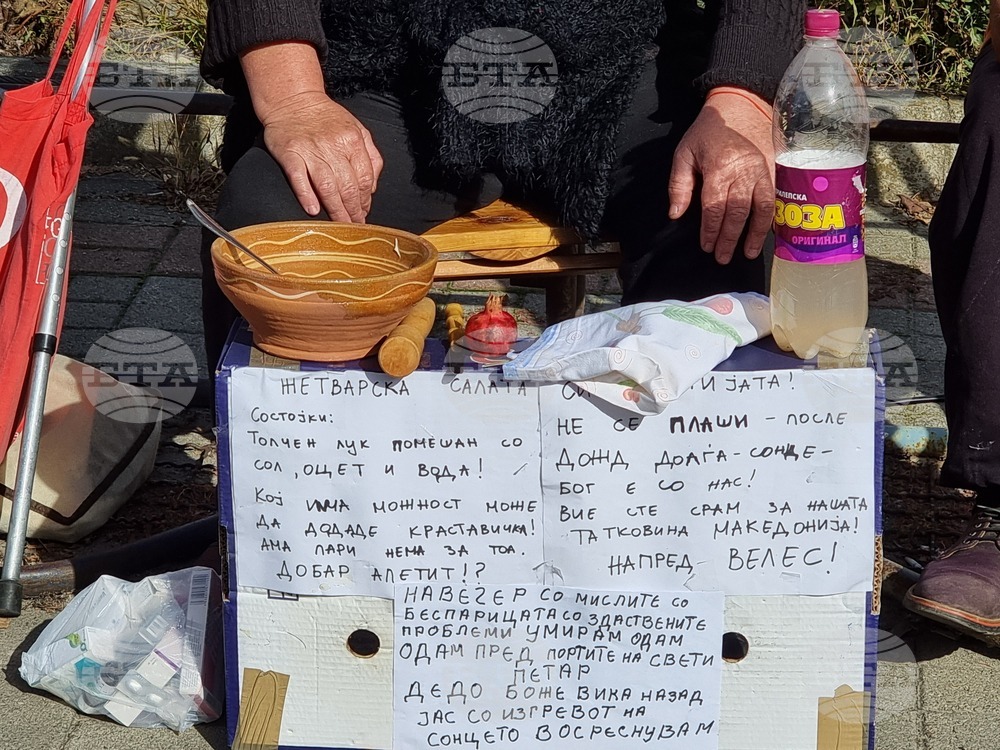 ЖЕТВАРСКА САЛАТА
Состојки:
Толчен лук помешан со
сол, оцет и вода!
Кој има можност може
да додаде краставичка!
ама пари нема за тоа.
Добар апетит!?
ЈАТА!
НЕ СЕ ПЛАШИ - ПОСЛЕ
ДОЖД ДОАЃА - СОНЦЕ -
БОГ Е СО НАС!
ВИЕ СТЕ СРАМ ЗА НАШАТА
ТАТКОВИНА МАКЕДОНИЈА!
НАПРЕД ВЕЛЕС!
НАВЕЧЕР СО МИСЛИТЕ СО
БЕСПАРИЦАТА СО ЗДАСТВЕНИТЕ
ПРОБЛЕМИ УМИРАМ ОДАМ
ОДАМ ПРЕД ПОРТИТЕ НА СВЕТИ
ПЕТАР
ДЕДО БОЖЕ ВИКА НАЗАД
ЈАС СО ИЗГРЕВОТ НА
СОНЦЕТО ВОСРЕСНУВАМ
ПРИЛЕПСКА
БОЗА
ОРИГИНАЛ
БТА
БТА
БТА